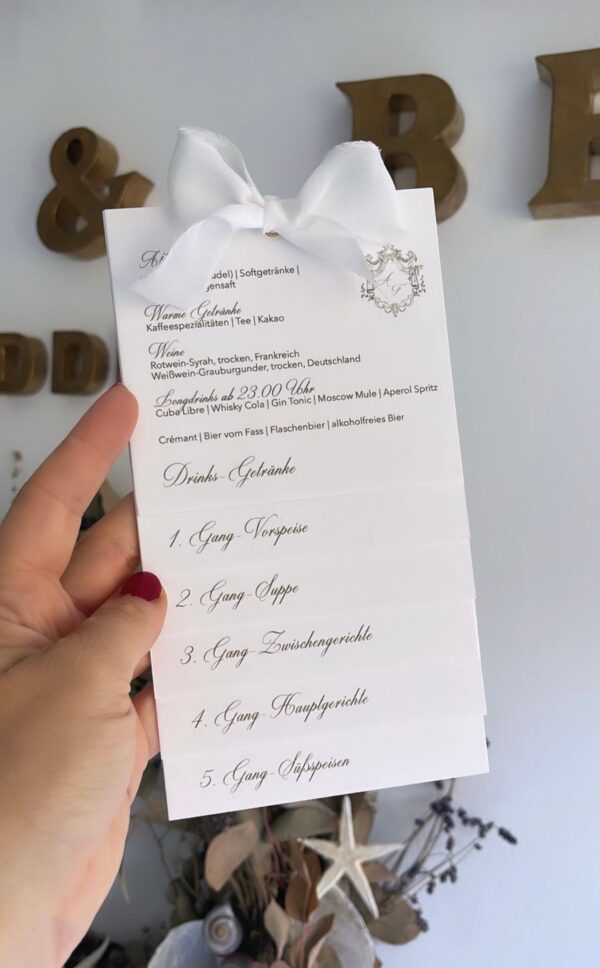 & B E
DD
udel) | Softgetränke |
gensaft
Warme Getränke
Kaffeespezialitäten | Tee | Kakao
Weine
Rotwein-Syrah, trocken, Frankreich
Weißwein-Grauburgunder, trocken, Deutschland
Longdrinks ab 23.00 Uhr
Cuba Libre | Whisky Cola | Gin Tonic | Moscow Mule | Aperol Spritz
Crémant | Bier vom Fass | Flaschenbier | alkoholfreies Bier
Drinks-Getränke
1. Gang-Vorspeise
2. Gang-Suppe
3. Gang-Zwischengerichte
4. Gang-Hauptgerichte
5. Gang-Süßspeisen